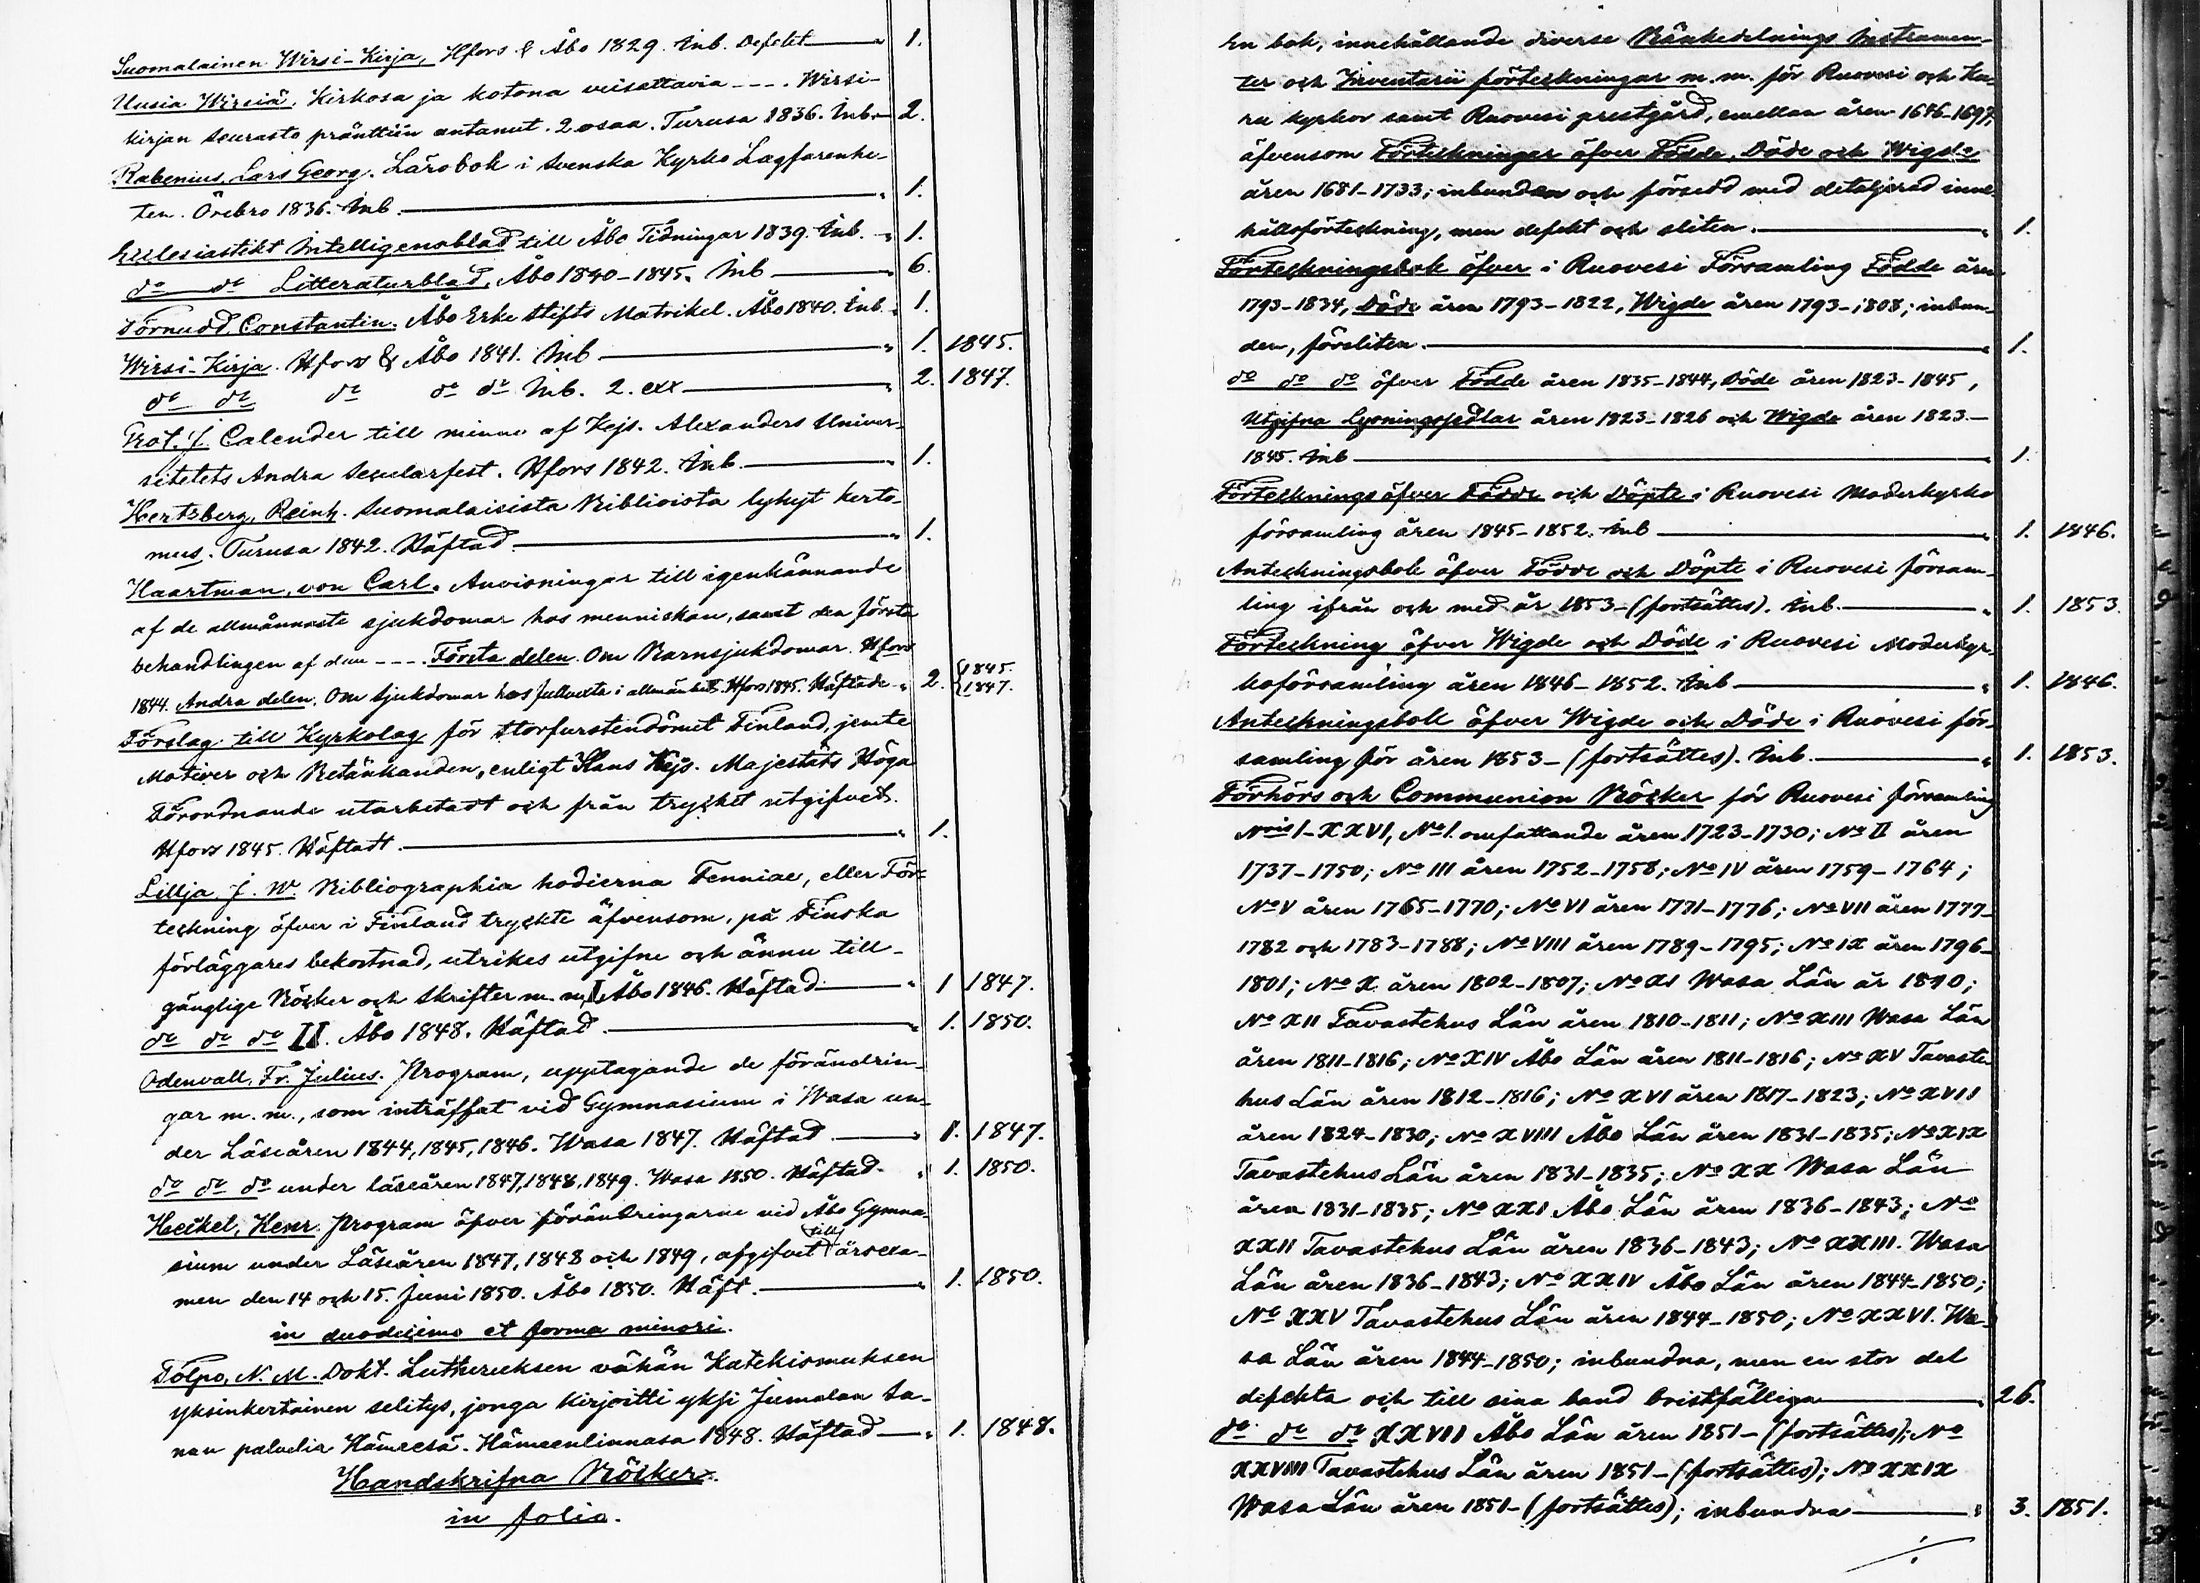 Suomalainen Wirsi-Kirja, Hfors & Åbo 1829. Inb. Defekt — " 1.
Uusia Wirsiä, Kirkosa ja kotona veisattavia - - - . Wirsi-
kirjan seurasta präntttiin antanut. 2 osaa. Turusa 1836. Inb. " 2.
Rabenius, Lars Georg. Lärobok i Svenska Kyrko Lagfarenhe-
ten. Örebro 1836. Inb. — " 1.
Ecclesiastikt Intelligensblad till Åbo Tidningar 1839. Inb. " 1.
do do Litteraturblad, Åbo 1840-1845. Inb — " 6.
Törnudd, Constantin. Åbo Erke Stifts Matrikel. Åbo 1840. Inb. " 1.
Wirsi-Kirja. Hfors & Åbo 1841. Inb — " 1. 1845.
do do do do do Inb. 2. exx — " 2. 1847.
Prof. J. Calender till minne af Kejs. Alexanders Univer-
sitetets Andra Secularfest. Hfors 1842. Inb. — " 1.
Hertzberg, Reinh. Suomalaisista Biblioista lyhyt kerto-
mus. Turusa 1842. Häftad. — " 1.
Haartman, von Carl. Anvisningar till igenkännande
af de allmännaste sjukdomar hos menniskan, samt den första
behandlingen af dem - - - . Första delen. Om Barnsjukdomar. Hfors
1844. Andra delen. Om Sjukdomar hos fullvexta i allmänhet. Hfors 1845. Häftade " 2. {1845. 1847.
Förslag till Kyrkolag för Storfurstendömet Finland, jemte
Motiver och Betänkanden, enligt Hans Kejs. Majestäts Höga
Förordnande utarbetadt och från trycket utgifvet.
Hfors 1845. Häftadt. — " 1.
Lillja, J. W. Bibliographia hodierna Fenniae, eller För-
teckning öfver i Finland tryckte äfvensom, på Finska
förläggares bekostnad, utrikes utgifne och ännu till-
gänglige Böcker och Skrifter m. m. I Åbo 1846. Häftad — " 1 1847.
do do do II. Åbo 1848. Häftad. — " 1. 1850.
Odenvall, Fr. Julius. Program, upptagande de förändrin-
gar m. m., som inträffat vid Gymnasium i Wasa un-
der Läseåren 1844, 1845, 1846. Wasa 1847. Häftad — " 1. 1847.
do do do under läseåren 1847, 1848, 1849. Wasa 1850. Häftad. " 1. 1850.
Heikel, Henr. Program öfver förändringarne vid Åbo Gymna-
sium under Läseåren 1847, 1848 och 1849, afgifvet till årsexa-
men den 14 och 15. Juni 1850. Åbo 1850. Häft. — " 1. 1850.
in duodecimo et forma minori.
Tolpo, N. M. Dokt. Lutheruksen vähän Katekismuksen
yksinkertainen selitys, jonga kirjoitti yksi Jumalan sa-
nan palvelia Hämeesä. Hämeenlinnasa 1848. Häftad — " 1. 1848.
Handskrifna Böcker.
in folio.
En bok, innehållande diverse Bänkedelnings Instrumen-
ter och Inventarii förteckningar m. m. för Ruovesi och Ku-
ru kyrkor samt Ruovesi prestgård, emellan åren 1676-1697,
äfvensom Förteckningar öfver Födde, Döde och Wigde
åren 1681-1733; inbunden och försedd med detaljerad inne-
hållsförteckning, men defekt och sliten. — " 1.
Förteckningsbok öfver i Ruovesi Församling Födde åren
1793-1834, Döde åren 1793-1822, Wigde åren 1793-1808; inbun-
den, försliten. — " 1.
do do do öfver Födde åren 1835-1844, Döde åren 1823-1845,
Utgifna Lysningssedlar åren 1823-1826 och Wigde åren 1823-
1845. Inb — " 1.
Förteckning öfver Födde och Döpte i Ruovesi Moderkyrko
församling åren 1845-1852. Inb — " 1. 1846.
Anteckningsbok öfver Födde och Döpte i Ruovesi försam-
ling ifrån och med år 1853-(fortsättes). Inb. — " 1. 1853.
Förteckning öfver Wigde och Döde i Ruovesi Moderkyr-
koförsamling åren 1846-1852. Inb — " 1. 1846.
Anteckningsbok öfver Wigde och Döde i Ruovesi för-
samling för åren 1853-(fortsättes). Inb. — " 1. 1853.
Förhörs och Communion Böcker för Ruovesi församling
Nris I-XXVI, No I. omfattande åren 1723-1730; No II åren
1737-1750; No III åren 1752-1758; No IV åren 1759-1764;
No V åren 1765-1770; No VI åren 1771-1776; No VII åren 1777-
1782 och 1783-1788; No VIII åren 1789-1795; No IX åren 1796-
1801; No X åren 1802-1807; No XI Wasa Län år 1810;
No XII Tavastehus Län åren 1810-1811; No XIII Wasa Län
åren 1811-1816; No XIV Åbo Län åren 1811-1816; No XV Tavaste-
hus Län åren 1812-1816; No XVI åren 1817-1823; No XVII
åren 1824-1830; No XVIII Åbo Län åren 1831-1835; No XIX
Tavastehus Län åren 1831-1835; No XX Wasa Län
åren 1831-1835; No XXI Åbo Län åren 1836-1843; No
XXII Tavastehus Län åren 1836-1843; No XXIII. Wasa
Län åren 1836-1843; No XXIV Åbo Län åren 1844-1850;
No XXV Tavastehus Län åren 1844-1850; No XXVI. Wa-
sa Län åren 1844-1850; inbundna, men en stor del
defekta och till sina band bristfälliga — " 26.
do do do XXVII Åbo Län åren 1851-(fortsättes); No
XXVIII Tavastehus Län åren 1851-(fortsättes); No XXIX
Wasa Län åren 1851-(fortsättes); inbundna — " 3. 1851.